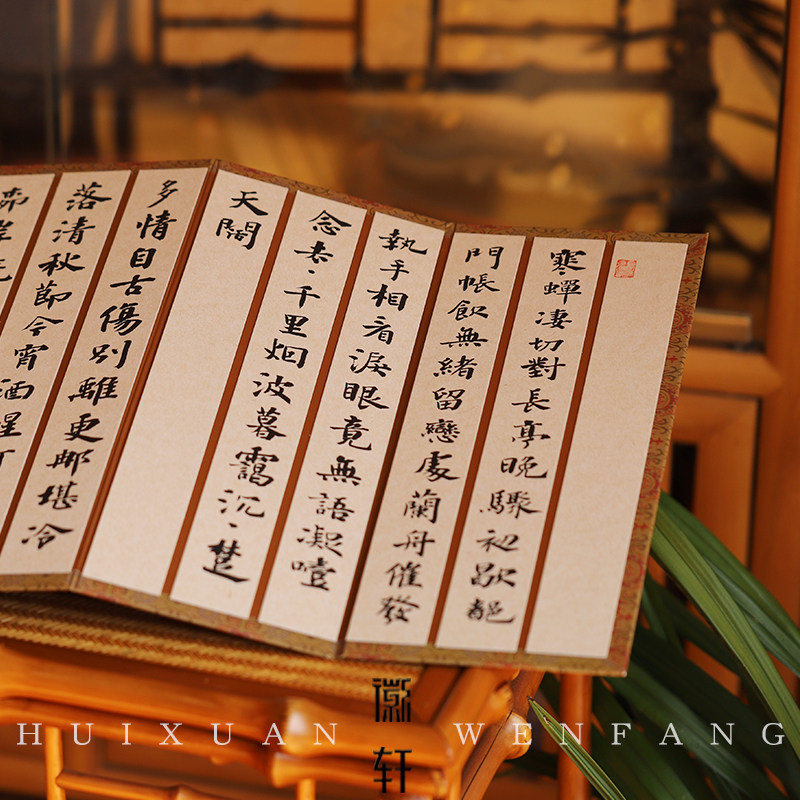 寒蟬凄切對長亭晚驟初歇都
門帳飲無緒留戀處蘭舟催發
執手相看淚眼竟無語凝噎
念去、千里烟波暮靄沉、楚
天闊
多情自古傷別離更那堪冷
落清秋節今宵酒醒
徽轩
HUIXUAN WENFANG